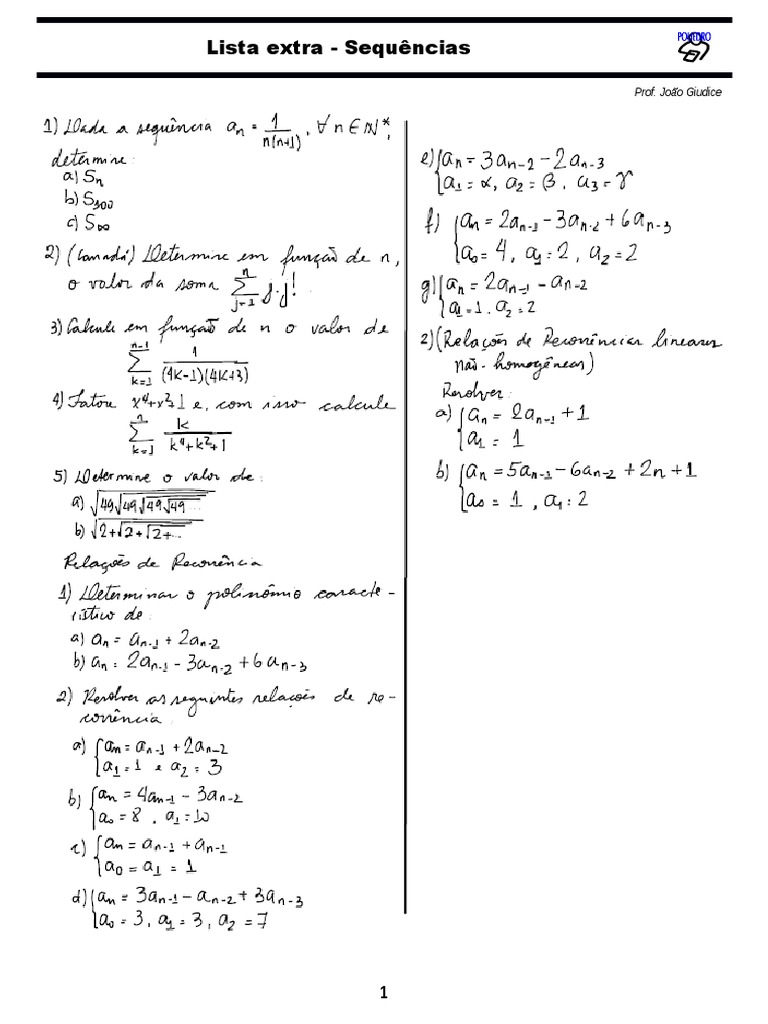 Lista extra - Sequências
POLIEDRO
Prof. João Giudice
1) Dada a sequência aₙ = 1/(n(n+1)), ∀ n ∈ ℕ*,
determine:
a) Sₙ
b) S₁₀₀
c) S∞
2) (Canadá) Determine em função de n,
o valor da soma ∑_{j=1}^{n} j·j!
3) Calcule em função de n o valor de
∑_{k=1}^{n-1} 1/((4k-1)(4k+3))
4) Fatore x⁴+x²+1 e, com isso calcule
∑_{k=1}^{n} k/(k⁴+k²+1)
5) Determine o valor de:
a) √(49√(49√(49√(49...
b) √(2+√(2+√(2+...
Relações de Recorrência
1) Determinar o polinômio caracte-
rístico de:
a) aₙ = aₙ₋₁ + 2aₙ₋₂
b) aₙ = 2aₙ₋₁ - 3aₙ₋₂ + 6aₙ₋₃
2) Resolver as seguintes relações de re-
corrência:
a) {aₙ = aₙ₋₁ + 2aₙ₋₂
a₁ = 1 e a₂ = 3
b) {aₙ = 4aₙ₋₁ - 3aₙ₋₂
a₀ = 8, a₁ = 10
c) {aₙ = aₙ₋₁ + aₙ₋₁
a₀ = a₁ = 1
d) {aₙ = 3aₙ₋₁ - aₙ₋₂ + 3aₙ₋₃
a₀ = 3, a₁ = 3, a₂ = 7
e) {aₙ = 3aₙ₋₂ - 2aₙ₋₃
a₁ = α, a₂ = β, a₃ = γ
f) {aₙ = 2aₙ₋₁ - 3aₙ₋₂ + 6aₙ₋₃
a₀ = 4, a₁ = 2, a₂ = 2
g) {aₙ = 2aₙ₋₁ - aₙ₋₂
a₁ = 1. a₂ = 2
2) (Relações de Recorrências lineares
não-homogêneas)
Resolver:
a) {aₙ = 2aₙ₋₁ + 1
a₁ = 1
b) {aₙ = 5aₙ₋₁ - 6aₙ₋₂ + 2n + 1
a₀ = 1, a₁ = 2
1